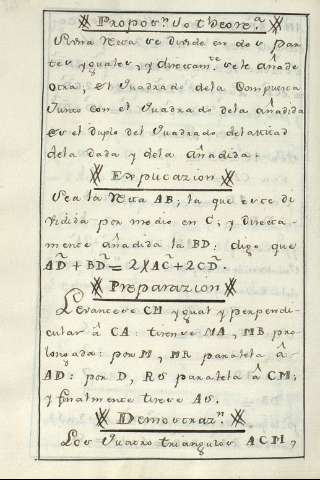 Propos.n 10 theore.a
Si una recta se divide en dos par
tes yguales, y directam.te se le añade
otra; el Quadrado dela Compuesta
Junto con el Quadrado dela añadida
es el duplo del Quadrado dela mitad
dela dada y dela añadida.
Expucazion
Sea la recta AB; la que este di
vidida por medio en C; y directa-
mente añadida la BD: digo que
AD + BD = 2 AC + 2 CD.
Preparazion
Levantese CM ygual y perpendi-
cular â CA: tirense MA, MB pro
longada: por M, MR paralela â
AD: por D, RS paralela â CM;
y finalmente tirese AS.
Demostraz.n
Los Quatro triangulos ACM,